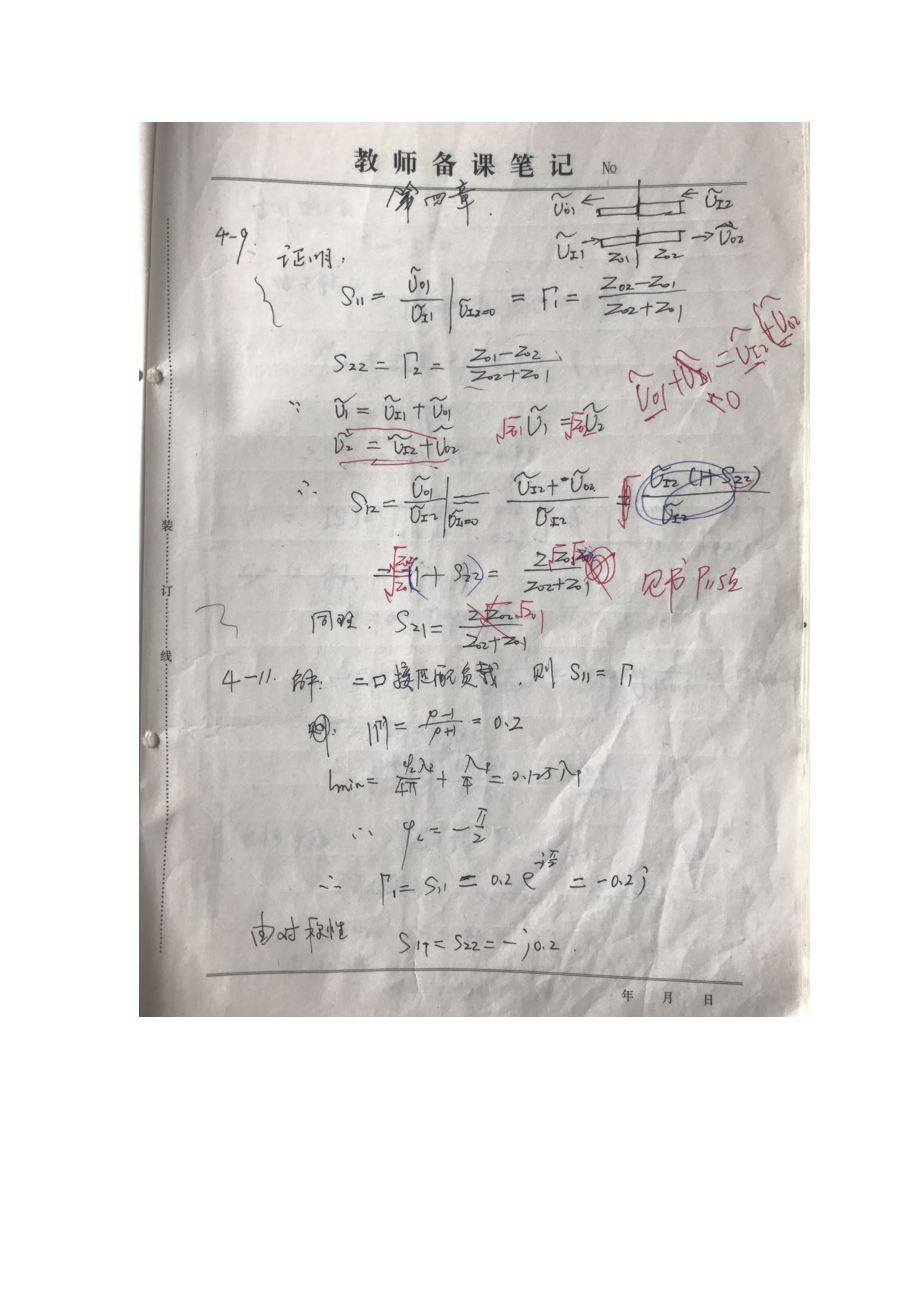 教师备课笔记 №
第四章.
Ũ01 ← ← ŨI2
ŨI1 → Z01 Z02 → Ũ02
4-9. 证明:
S11 = Ũ01/ŨI1 |ŨI2=0 = Γ1 = (Z02-Z01)/(Z02+Z01)
S22 = Γ2 = (Z01-Z02)/(Z02+Z01)
Ũ01+ŨI1=ŨI2+Ũ02
=0
∵ Ũ1 = ŨI1+Ũ01
√Z01 Ũ1 = √Z02 Ũ2
Ũ2 = ŨI2+Ũ02
∴ S12 = Ũ01/ŨI2 |ŨI1=0 = (ŨI2+Ũ02)/ŨI2 = ŨI2(1+S22)/ŨI2
= √Z02/√Z01 (1+S22) = 2√Z01√Z02/(Z02+Z01)
见书P115
同理. S21 = 2√Z02√Z01/(Z02+Z01)
4-11. 解: 二口接匹配负载, 则 S11=Γ1
则: |Γ| = (ρ-1)/(ρ+1) = 0.2
lmin = φLλp/4π + λp/4 = 0.125λp
∴ φL = -π/2
∴ Γ1 = S11 = 0.2e^(-jπ/2) = -0.2j
由对称性 S11 = S22 = -j0.2.
装
订
线
年 月 日